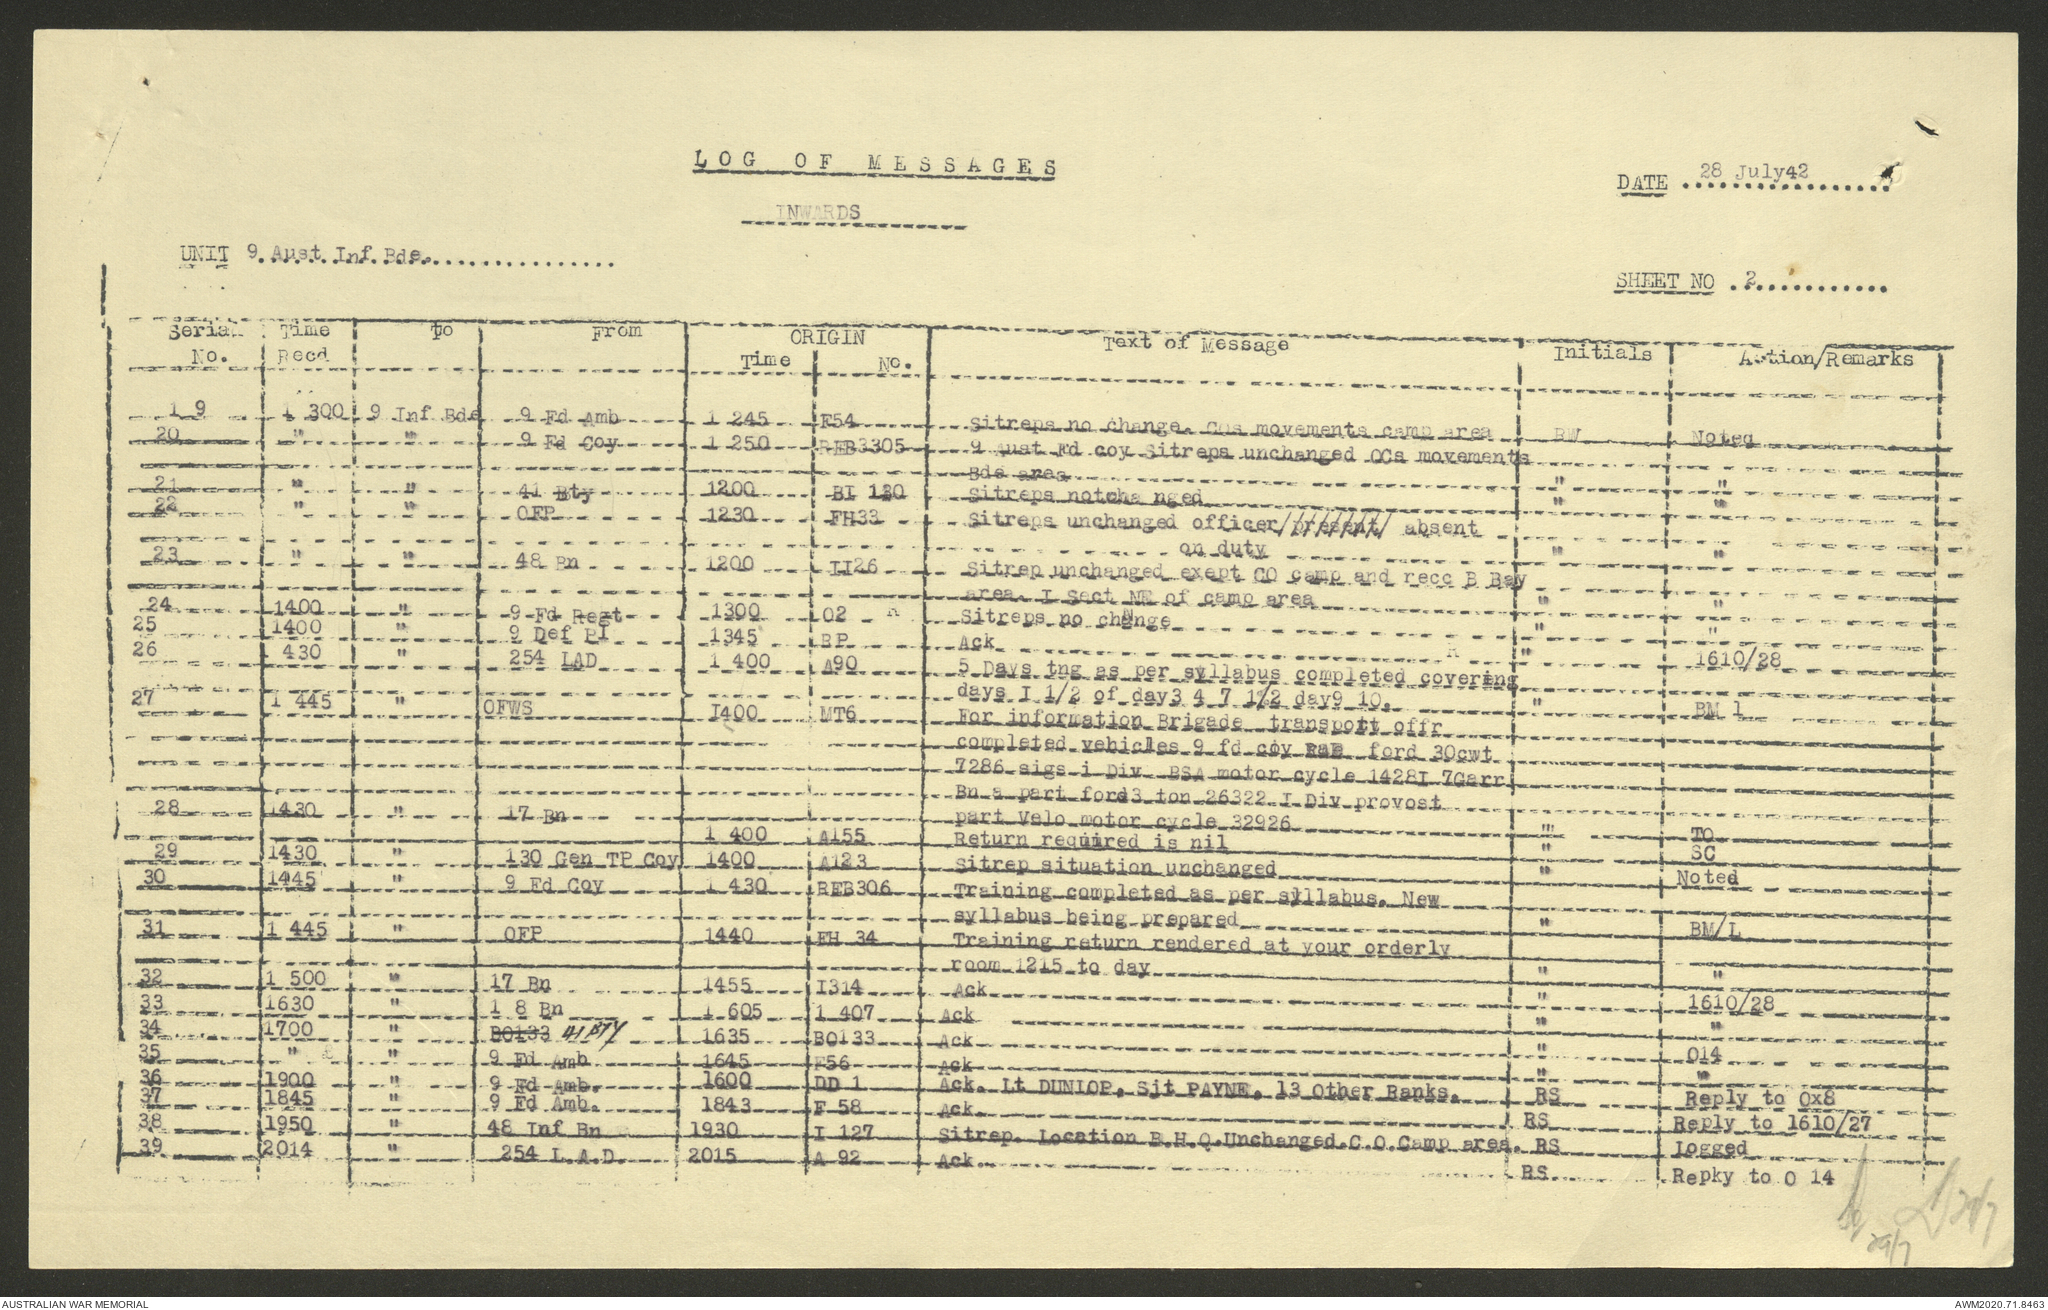 LOG OF MESSAGES
INWARDS
DATE 28 July42
UNIT 9 Aust Inf Bde.
SHEET NO 2
Serial No. Time Recd to From ORIGIN Time No. Text of Message Initials Action/Remarks
19 1 300 9 Inf Bde 9 Fd Amb 1 245 F54 Sitreps no change. COs movements camp area RW Noted
20 " " 9 Fd Coy 1 250 REB3305 9 Aust Fd coy Sitreps unchanged OCs movements
Bde area " "
21 " " 41 Bty 1200 BI 130 Sitreps notcha nged " "
22 " " OFP 1230 FH33 Sitreps unchanged officer/present/ absent
on duty " "
23 " " 48 Bn 1200 II26 Sitrep unchanged exept CO camp and recc B Bay
area. I Sect NE of camp area " "
24 1400 " 9 Fd Regt 1300 O2 R Sitreps no change " "
25 1400 " 9 Def Pl 1345 BP Ack R " 1610/28
26 1 430 " 254 LAD 1 400 A90 5 Days tng as per syllabus completed covering
days I 1/2 of day3 4 7 1½2 day9 10. " BM l
27 1 445 " OFWS I400 MT6 For information Brigade transport offr
completed vehicles 9 fd coy RAE ford 30cwt
7286 sigs i Div BSA motor cycle 1428I 7Garr
Bn a part ford3 ton 26322 I Div provost
part Velo motor cycle 32926 " TO
28 1430 " 17 Bn 1 400 A155 Return required is nil " SC
29 1430 " 130 Gen TP Coy 1400 A123 Sitrep situation unchanged " Noted
30 1445 " 9 Fd Coy 1 430 REB306 Training completed as per syllabus. New
syllabus being prepared " BM/L
31 1 445 " OFP 1440 FH 34 Training return rendered at your orderly
room 1215 to day " "
32 1 500 " 17 Bn 1455 I314 Ack " 1610/28
33 1630 " 1 8 Bn 1 605 1 407 Ack " "
34 1700 " BO133 41 BTY 1635 BO133 Ack " O14
35 " " 9 Fd Amb 1645 F56 Ack " "
36 1900 " 9 Fd Amb. 1600 DD 1 Ack. Lt DUNLOP, Sjt PAYNE, 13 Other Ranks. RS Reply to 0x8
37 1845 " 9 Fd Amb. 1843 F 58 Ack. RS Reply to 1610/27
38 1950 " 48 Inf Bn 1930 I 127 Sitrep. Location B.H.Q.Unchanged.C.O.Camp area. RS Logged
39 2014 " 254 L.A.D. 2015 A 92 Ack. RS. Repky to O 14
29/7
AUSTRALIAN WAR MEMORIAL
AWM2020.71.8463